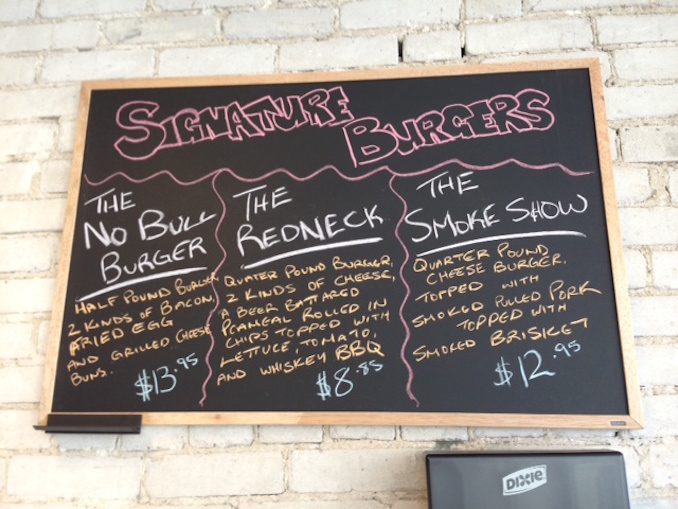 SIGNATURE
BURGERS
THE
NO BULL
BURGER
HALF POUND BURGER
2 KINDS OF BACON,
FRIED EGG
AND GRILLED CHEESE
BUNS.
$13.95
THE
REDNECK
QUATER POUND BURGER,
2 KINDS OF CHEESE,
A BEER BATTARED
PEAMEAL ROLLED IN
CHIPS TOPPED WITH
LETTUCE, TOMATO,
AND WHISKEY BBQ
$8.85
THE
SMOKE SHOW
QUARTER POUND
CHEESE BURGER.
TOPPED WITH
SMOKED PULLED PORK
TOPPED WITH
SMOKED BRISKET
$12.95
DIXIE